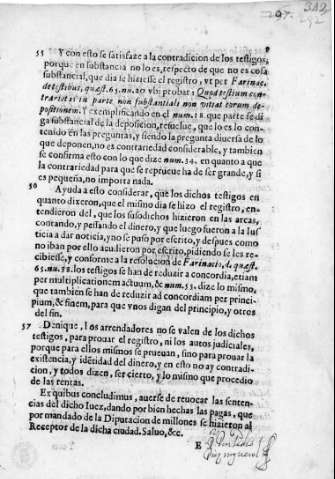 9
55 Y con esto se satisfaze a la contradicion de los testigos,
porque en substancia no lo es, respecto de que no es cosa
substancial, que dia se hiziesse el registro, vt per Farinac.
de testibus, quæst. 65. nu. 20 vbi probat: Quod testium con-
trarietas in parte non substantiali non vitiat eorum de-
positionem. Y exemplificando en el num. 28. que parte se di
ga substancial de la deposicion, resuelue, que lo es lo con-
tenido en las preguntas, y siendo la pregunta diuersa de lo
que deponen, no es contrariedad considerable, y tambien
se confirma esto con lo que dize num. 34. en quanto a que
la contrariedad para que se reprueue ha de ser grande, y si
es pequeña, no importa nada.
56 Ayuda a esto considerar, que los dichos testigos en
quanto dizeron, que el mismo dia se hizo el registro, en-
tendieron del, que los susodichos hizieron en las arcas,
contando, y pesando el dinero, y que luego fueron a la Ius
ticia a dar noticia, y no se puso por escrito, y despues como
no iban por ello acudieron por escrito, pidiendo se les re-
cibiesse, y conforme a la resolucion de Farinacio, d. quæst.
65. nu. 38. los testigos se han de reducir a concordia, etiam
per multiplicationem actuum, & num. 55. dize lo mismo,
que tambien se han de reduzir ad concordiam per princi-
pium, & finem, para que vnos digan del principio, y otros
del fin.
57 Denique, los arrendadores no se valen de los dichos
testigos, para prouar el registro, ni los autos judiciales,
porque para ellos mismos se prueuan, sino para prouar la
existencia, y identidad del dinero, y en esto no ay contradi-
cion, y todos dizen, ser cierto, y lo mismo que procedio
de las rentas.
Ex quibus concludimus, auerse de reuocar las senten-
cias del dicho Iuez, dando por bien hechas las pagas, que
por mandado de la Diputacion de millones se hizieron al
Receptor de la dicha ciudad. Saluo, &c.
E